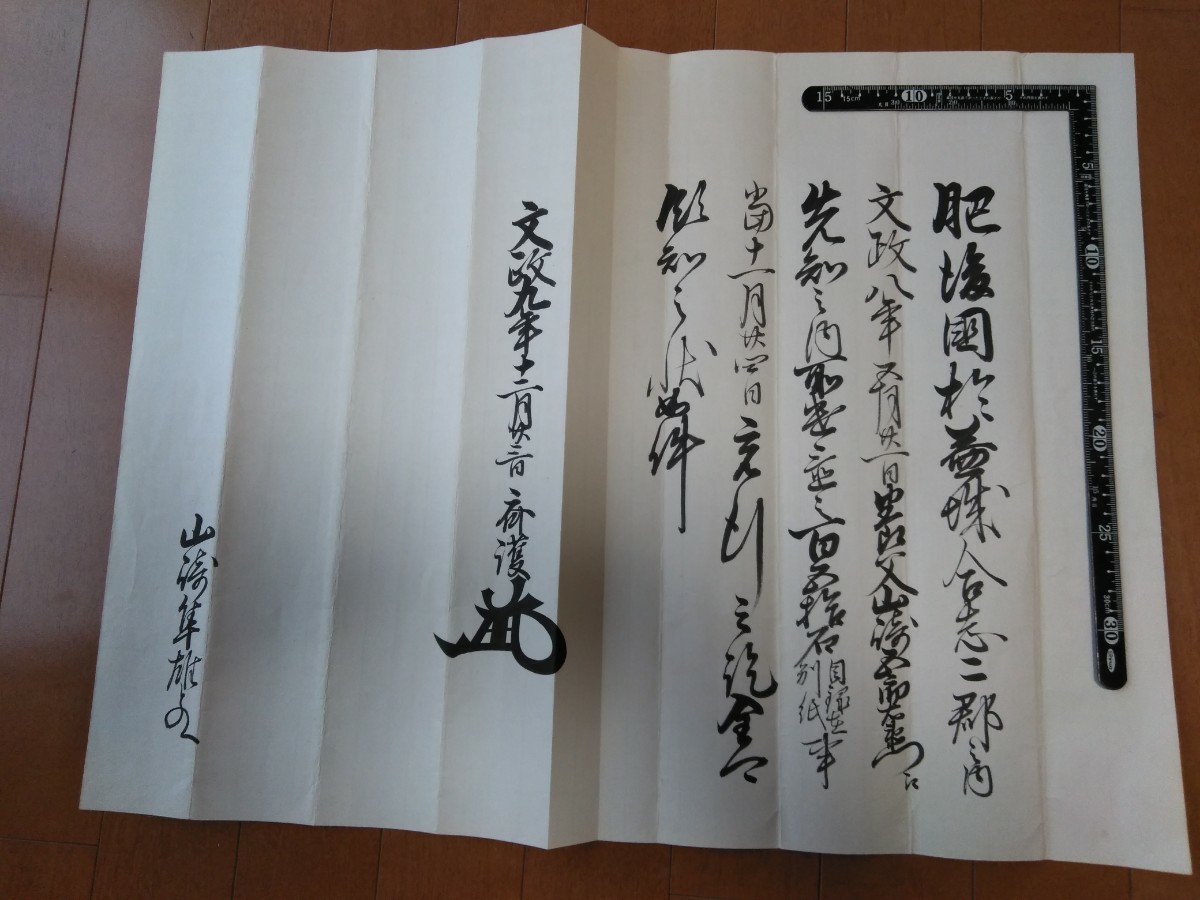 肥後國於益城合志二郡之内
文政八年五月廿一日父山崎五郎
先知之内百五拾石目録在別紙事
當十一月廿四日充行之訖全可
領知之状如件
文政九年十二月廿三日 斉護
山崎隼雄とのへ
15 15cm 10 5
5
10
15
20
25
30